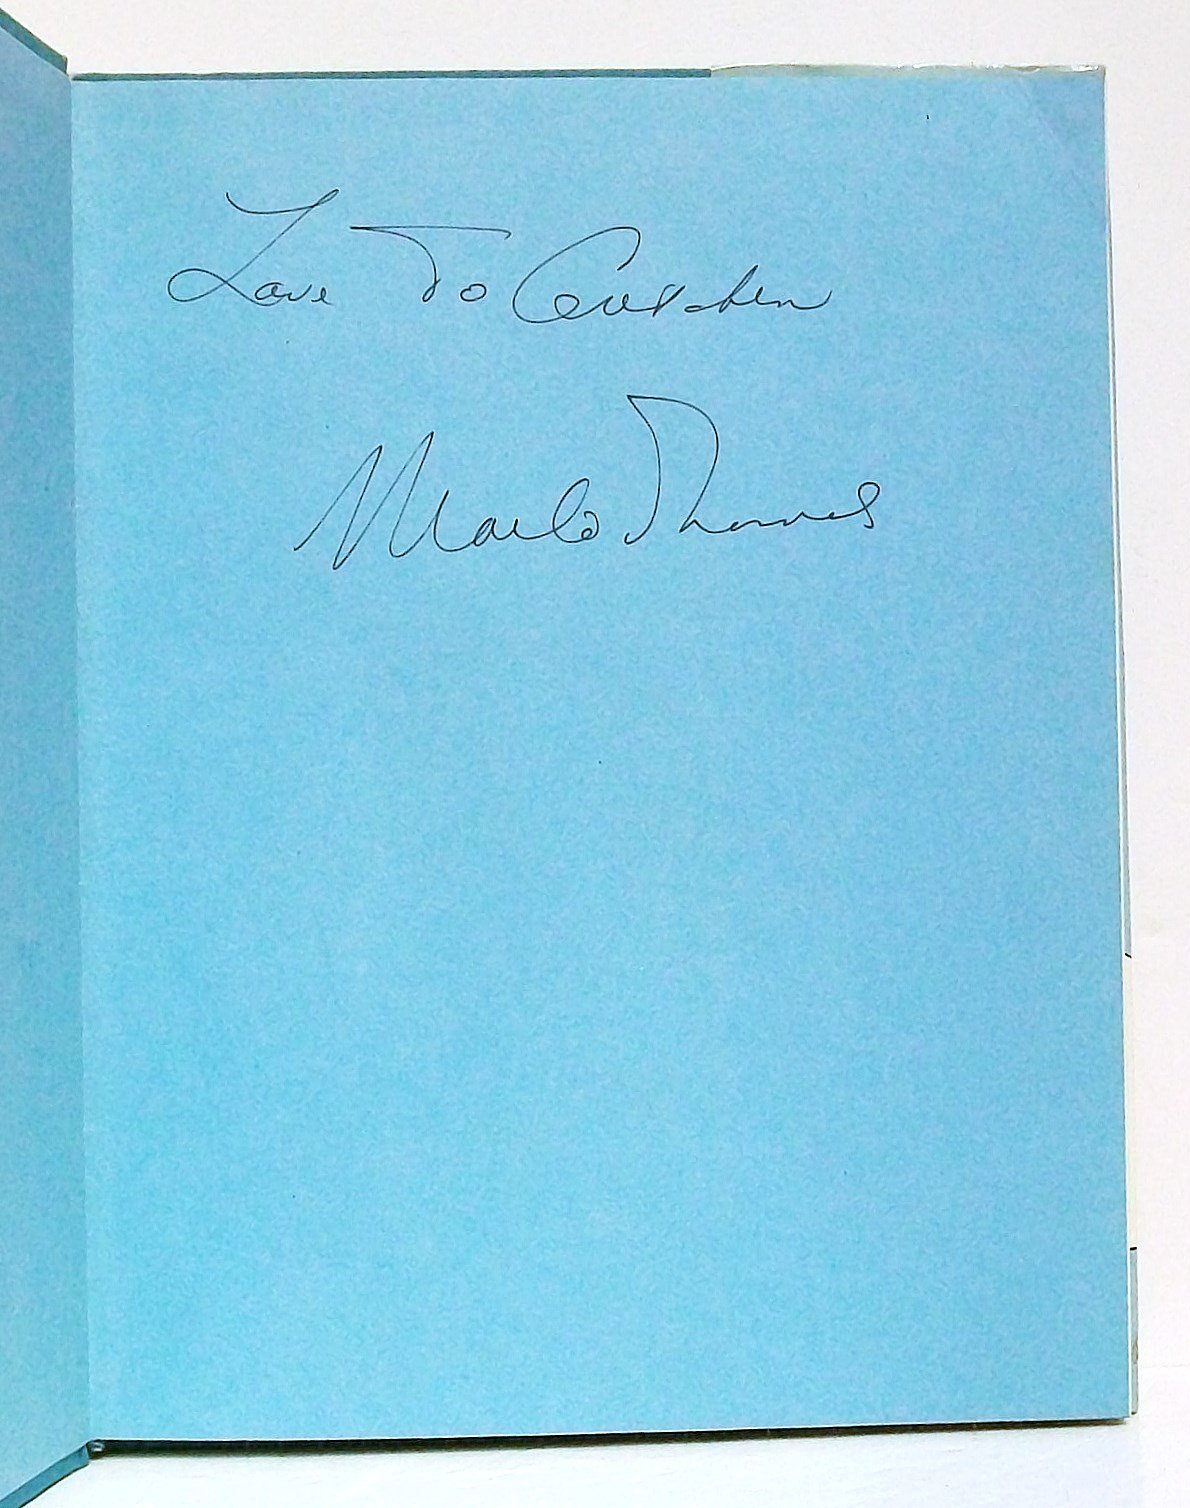 Love To Gretchen
Marlo Thomas